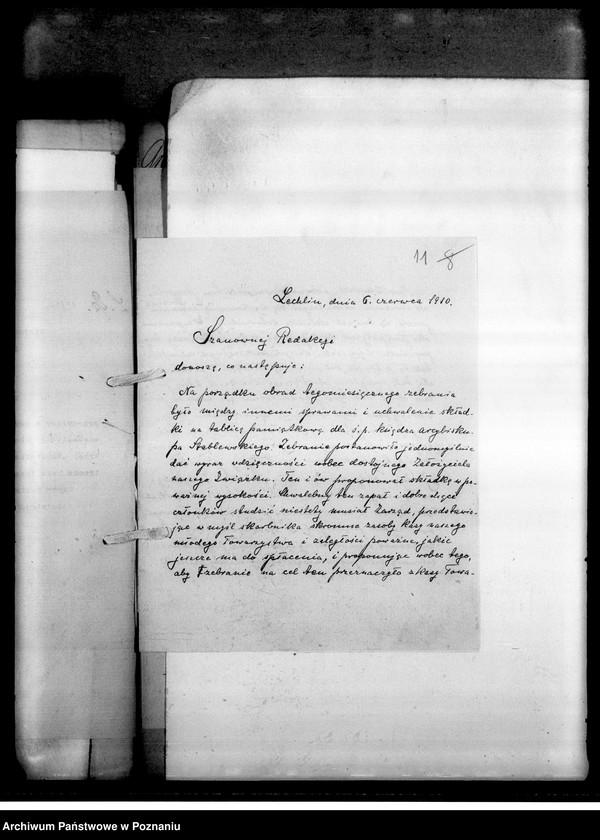 11 8
Lechlin, dnia 6. czerwca 1910.
Szanownej Redakcyi
donoszę, co następuje:
Na porządku obrad tegomiesięcznego zebrania
było między innemi sprawami i uchwalenie skład-
ki na tablicę pamiątkową dla ś.p. księdza arcybisku-
pa Stablewskiego. Zebranie postanowiło jednomyślnie
dać wyraz wdzięczności wobec dostojnego Założyciela
naszego Związku. Ten i ów proponował składkę w po-
ważnej wysokości. Chwalebny ten zapał i dobre chęci
członków studzić niestety musiał Zarząd, przedstawia-
jąc w myśl skarbnika skromne zasoby kasy naszego
młodego Towarzystwa i zaległości poważne, jakie
jeszcze ma do spłacenia, i proponując wobec tego,
aby zebranie na cel ten przeznaczyło z kasy Towa-
Archiwum Państwowe w Poznaniu